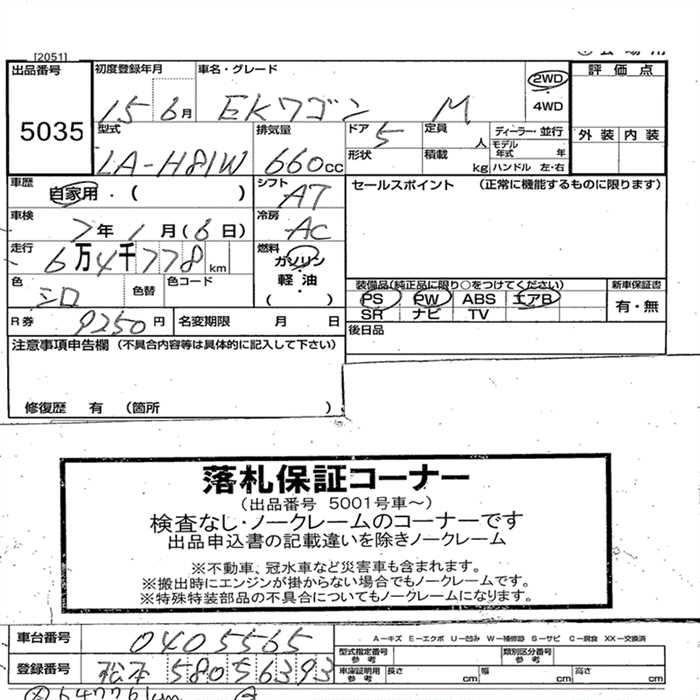 [2051]
出品番号
5035
初度登録年月
15 6月
車名・グレード
EKワゴン M
2WD
4WD
評価点
外装 内装
型式
LA-H81W
排気量
660cc
ドア
5
形状
定員
人
積載
kg
ディーラー・並行
モデル年式 年
ハンドル 左・右
車歴
自家用・( )
シフト
AT
車検
7年 1月(6日)
冷房
AC
走行
6万4千778km
燃料
ガソリン
軽油
( ・ )
色
シロ
色替
色コード
R券
9250円
名変期限 月 日
セールスポイント (正常に機能するものに限ります)
装備品(純正品に限り○をつけてください)
PS PW ABS エアB
SR ナビ TV
新車保証書
有・無
後日品
注意事項申告欄 (不具合内容等は具体的に記入して下さい)
修復歴 有 (箇所 )
落札保証コーナー
(出品番号 5001号車～)
検査なし・ノークレームのコーナーです
出品申込書の記載違いを除きノークレーム
※不動車、冠水車など災害車も含まれます。
※搬出時にエンジンが掛からない場合でもノークレームです。
※特殊特装部品の不具合についてもノークレームになります。
車台番号
0405565
A－キズ E－エクボ U－凹み W－補修跡 S－サビ C－腐食 XX－交換済
登録番号
松本 580 5 6393
型式指定番号 参考
類別区分番号 参考
車庫証明用 参考
長さ cm
幅 cm
高さ cm